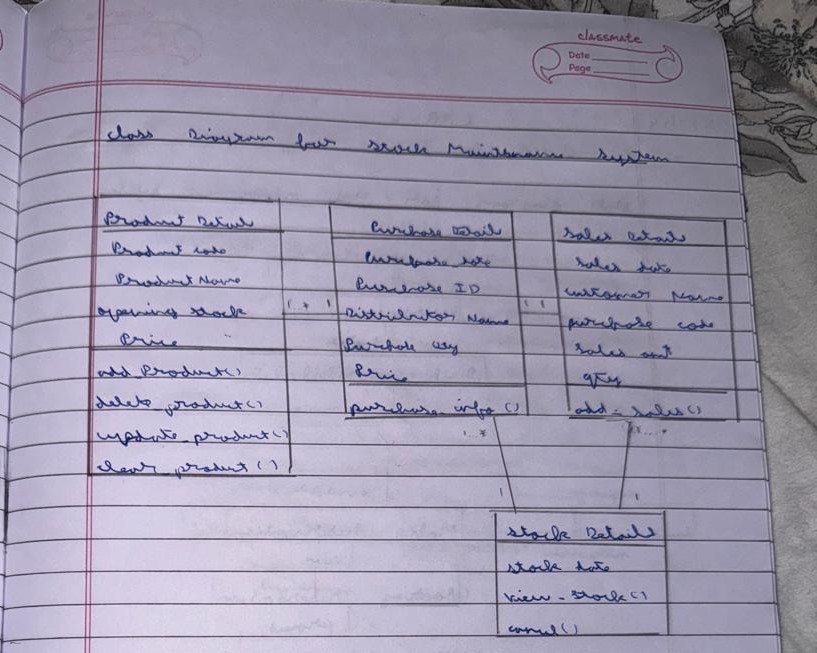 classmate
Date
Page
Class Diagram for Stock Maintenance System
Product Detail
Product code
Product Name
opening stock
Price
add_Product()
delete_product()
update_product()
clear_product()
1
1
Purchase Detail
Purchase
Purchase ID
Distributor Name
Purchase Qty
Price
purchase_info()
1
1
Sales Details
sales date
customer Name
purpose code
sales amt
qty
add_sales()
1..*
1
1
Stock Details
stock date
view_stock()
cancel()